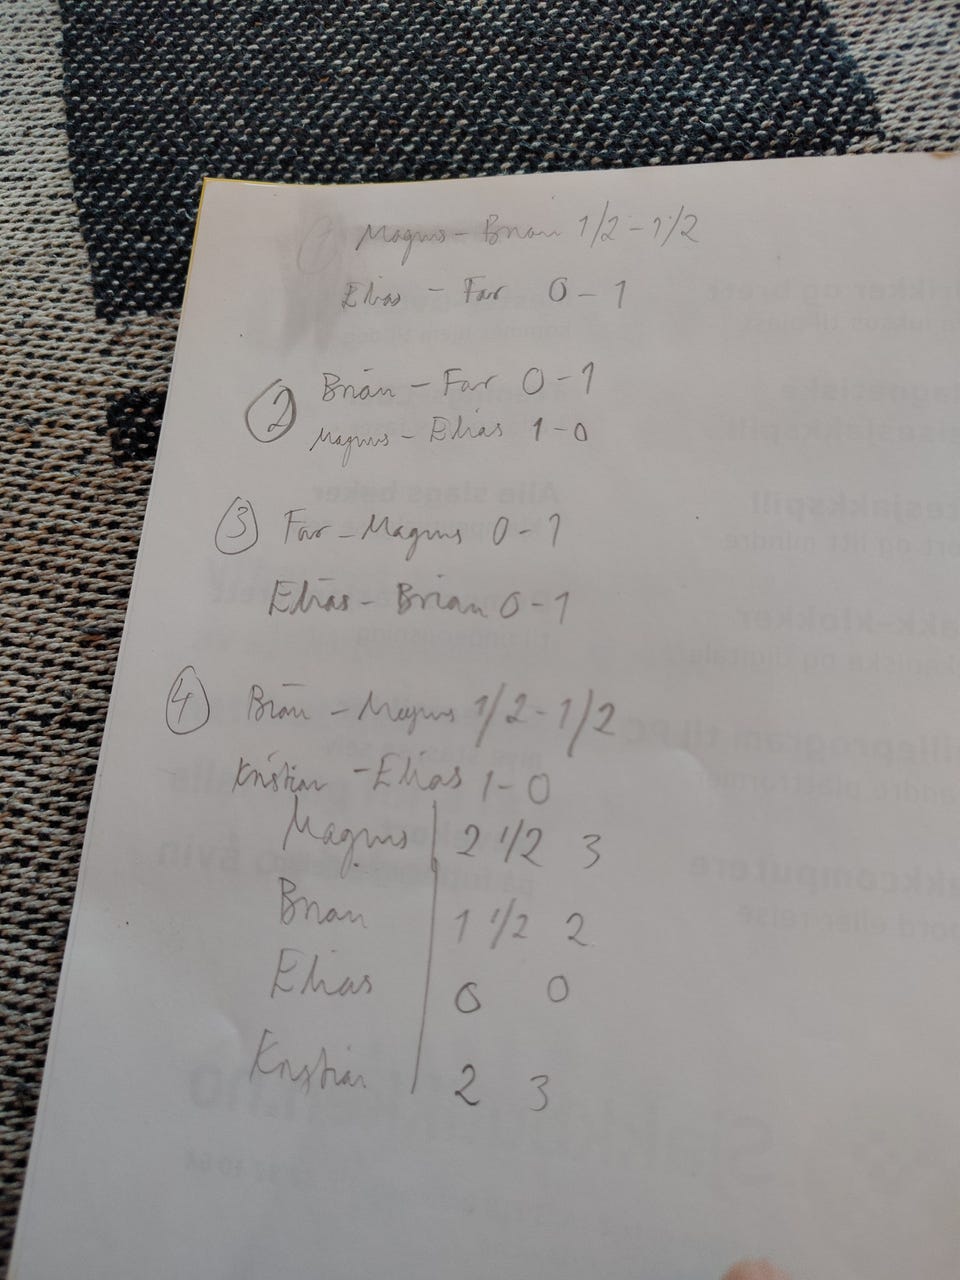 1 Magnus - Brian 1/2 - 1/2
Elias - Far 0 - 1
2 Brian - Far 0 - 1
Magnus - Elias 1-0
3 Far - Magnus 0 - 1
Elias - Brian 0 - 1
4 Brian - Magnus 1/2 - 1/2
Kristian - Elias 1-0
Magnus 2 1/2 3
Brian 1 1/2 2
Elias 0 0
Kristian 2 3